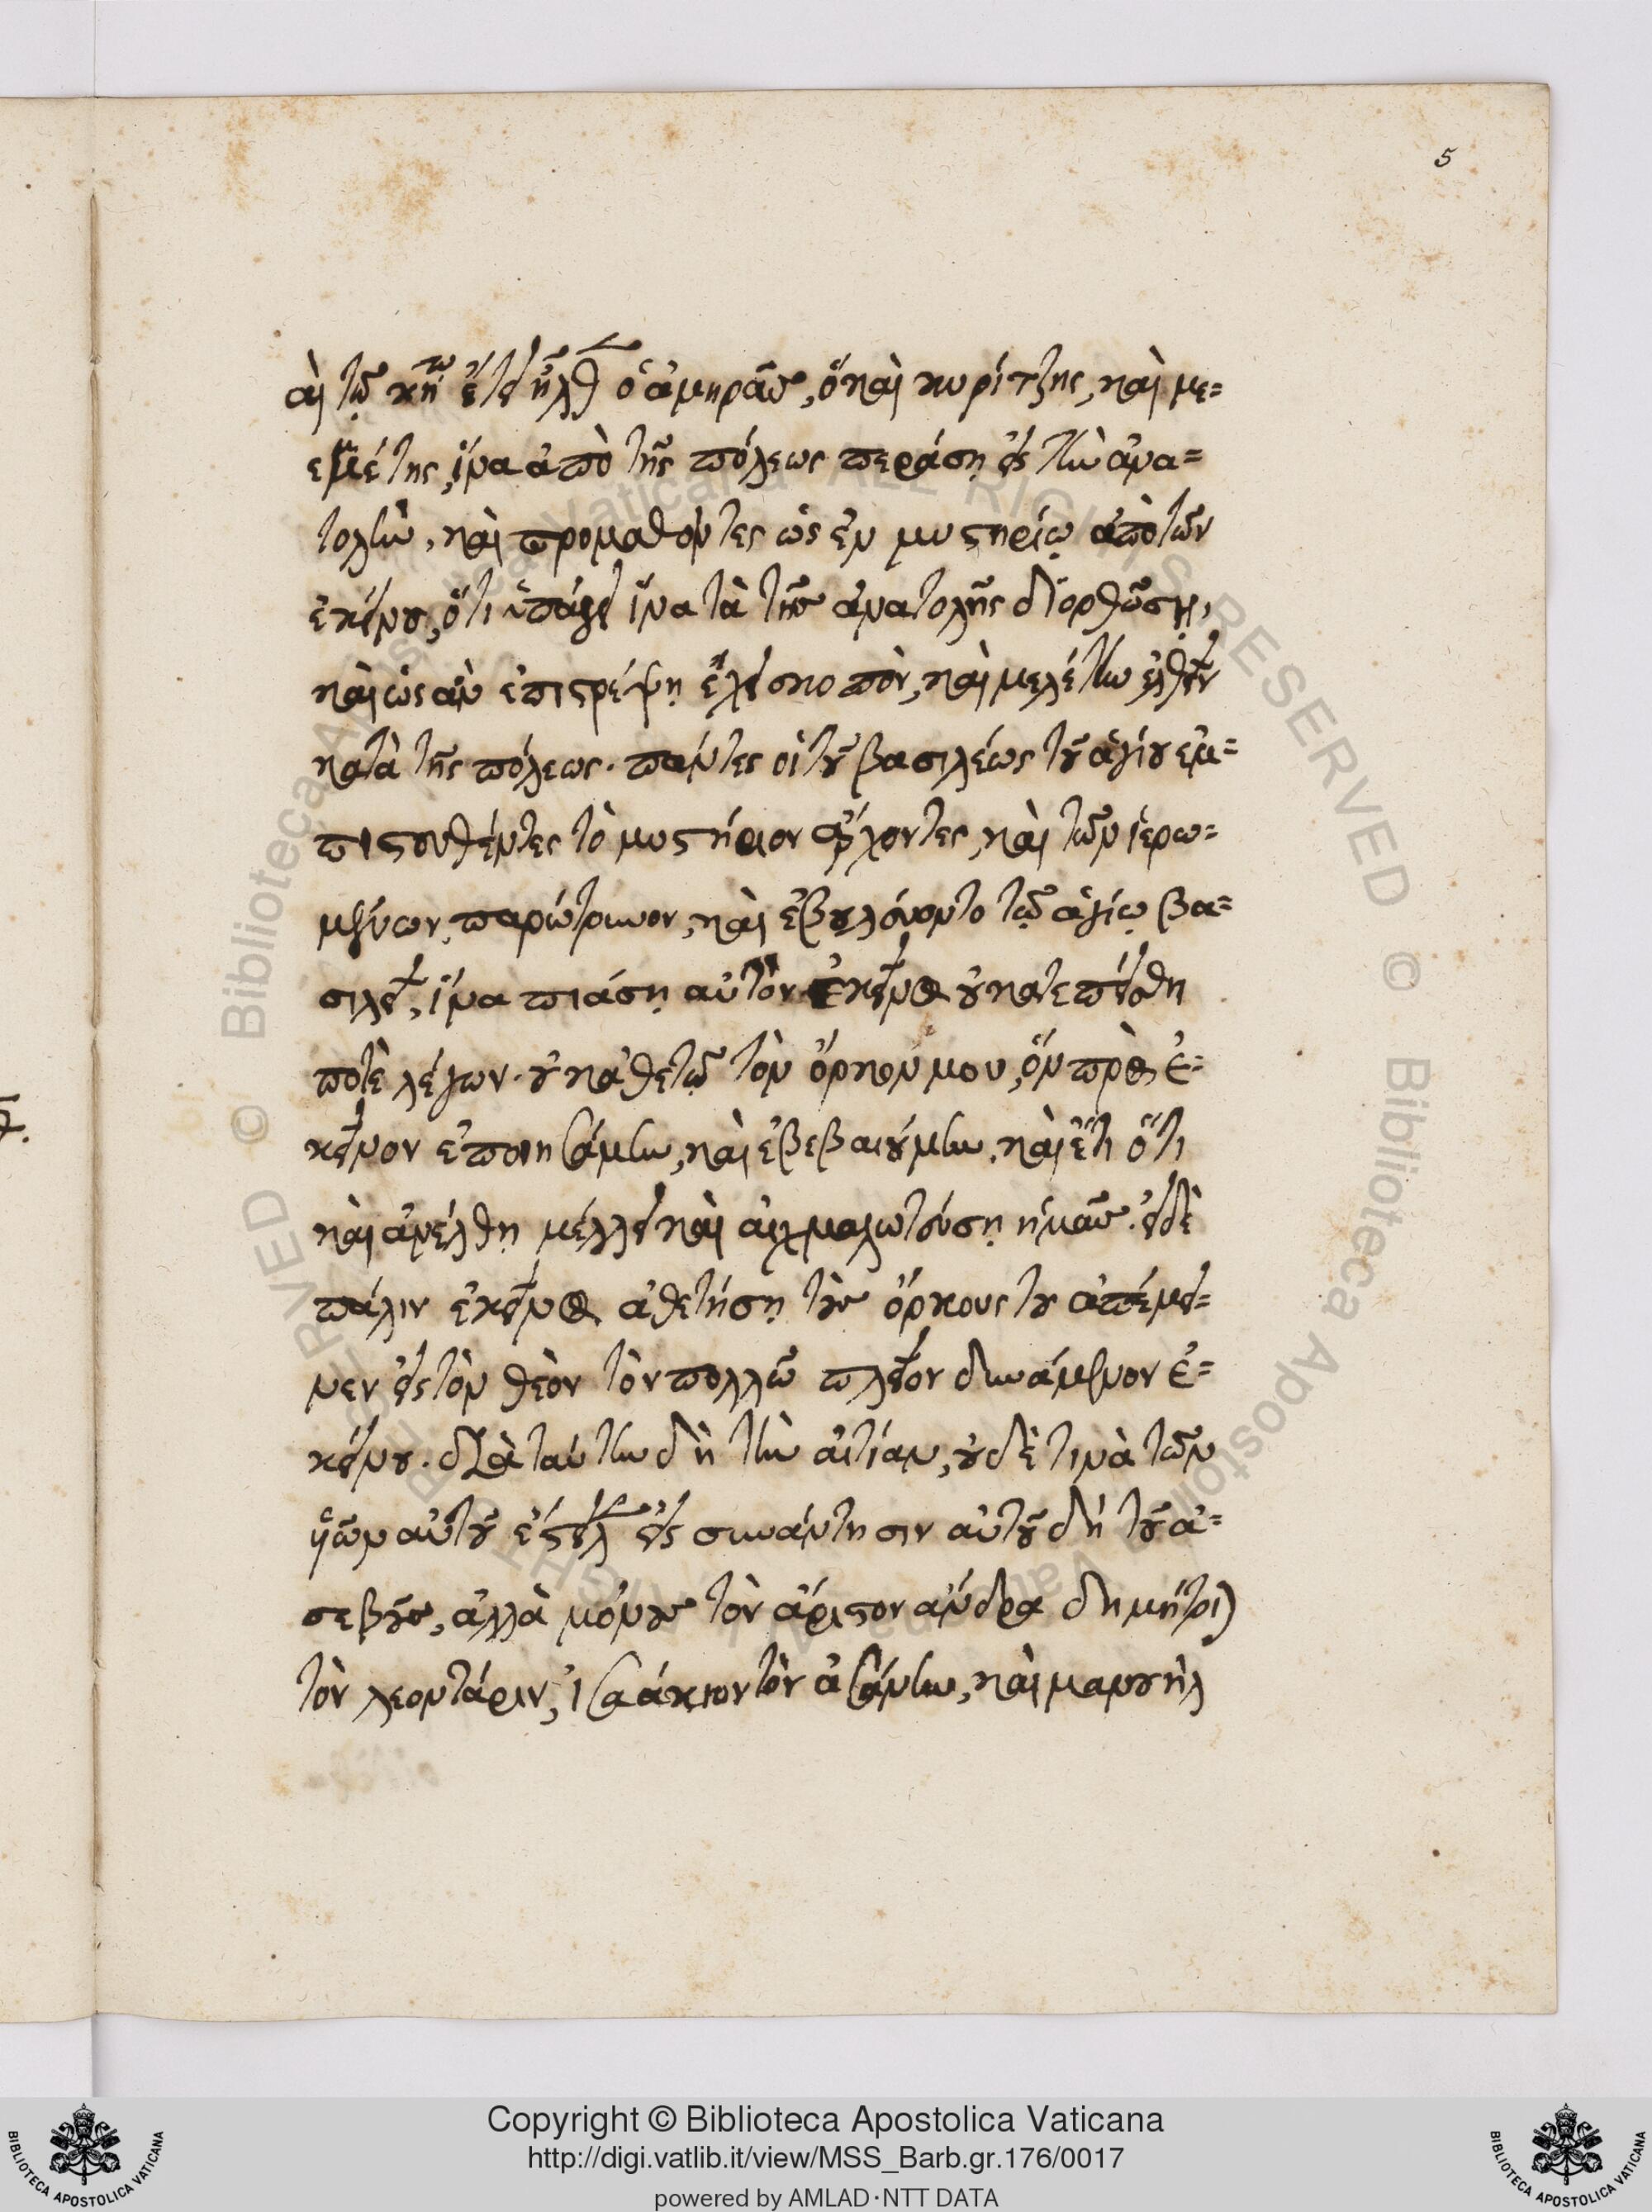 5
αὶ τῷ κη῀ω ἔτει ἦλθεν ὁ ἀμηρᾶς, ὁ καὶ κυρίτζης, καὶ με=
εμέτης, ἵνα ἀπὸ τῆς πόλεως περάσῃ εἰς τὴν ἀνα=
τολὴν, καὶ προμαθόντες ὡς ἐν μυστηρίῳ ἀπὸ τῶν
ἐκείνου, ὅτι ὑπάγει ἵνα τὰ τῆς ἀνατολῆς διορθώσῃ,
καὶ ὡς ἂν ἐπιστρέψῃ ἔχει σκοπὸν, καὶ μελέτην ἐλθεῖν
κατὰ τῆς πόλεως. πάντες οἱ τοῦ βασιλέως τοῦ ἁγίου ἐμ=
πιστευθέντες τὸ μυστήριον ἄρχοντες, καὶ τῶν ἱερω=
μένων, παρώτρυνον, καὶ ἐβουλεύοντο τῷ ἁγίῳ βα=
σιλεῖ, ἵνα πιάσῃ αὐτὸν. ἐκεῖνος οὐ κατεπείσθη
ποτὲ λέγων. οὐκ ἀθετῶ τὸν ὅρκον μου, ὃν πρὸς ἐ=
κεῖνον ἐποιησάμην, καὶ ἐβεβαιούμην, καὶ ἔτι ὅτι
καὶ ἀνέλθῃ μέλλει καὶ αἰχμαλωτεύσῃ ἡμᾶς. εἰ δὲ
πάλιν ἐκεῖνος ἀθετήσῃ τοὺς ὅρκους του ἀπέμει=
νεν εἰς τὸν θεὸν τὸν πολλῶ πλεῖον δυνάμενον ἐ=
κείνου. διὰ ταύτην δὴ τὴν αἰτίαν, οὐδὲ τινὰ τῶν
ὑῶν αὐτοῦ ἔστειλεν εἰς συνάντησιν αὐτοῦ δὴ τοῦ ἀ=
σεβοῦς, ἀλλὰ μόνους τὸν ἄριστον ἄνδρα δημήτριον
τὸν λεοντάριν, ἰσαάκιον τὸν ἀσάνην, καὶ μανουὴλ
Copyright © Biblioteca Apostolica Vaticana
http://digi.vatlib.it/view/MSS_Barb.gr.176/0017
powered by AMLAD·NTT DATA